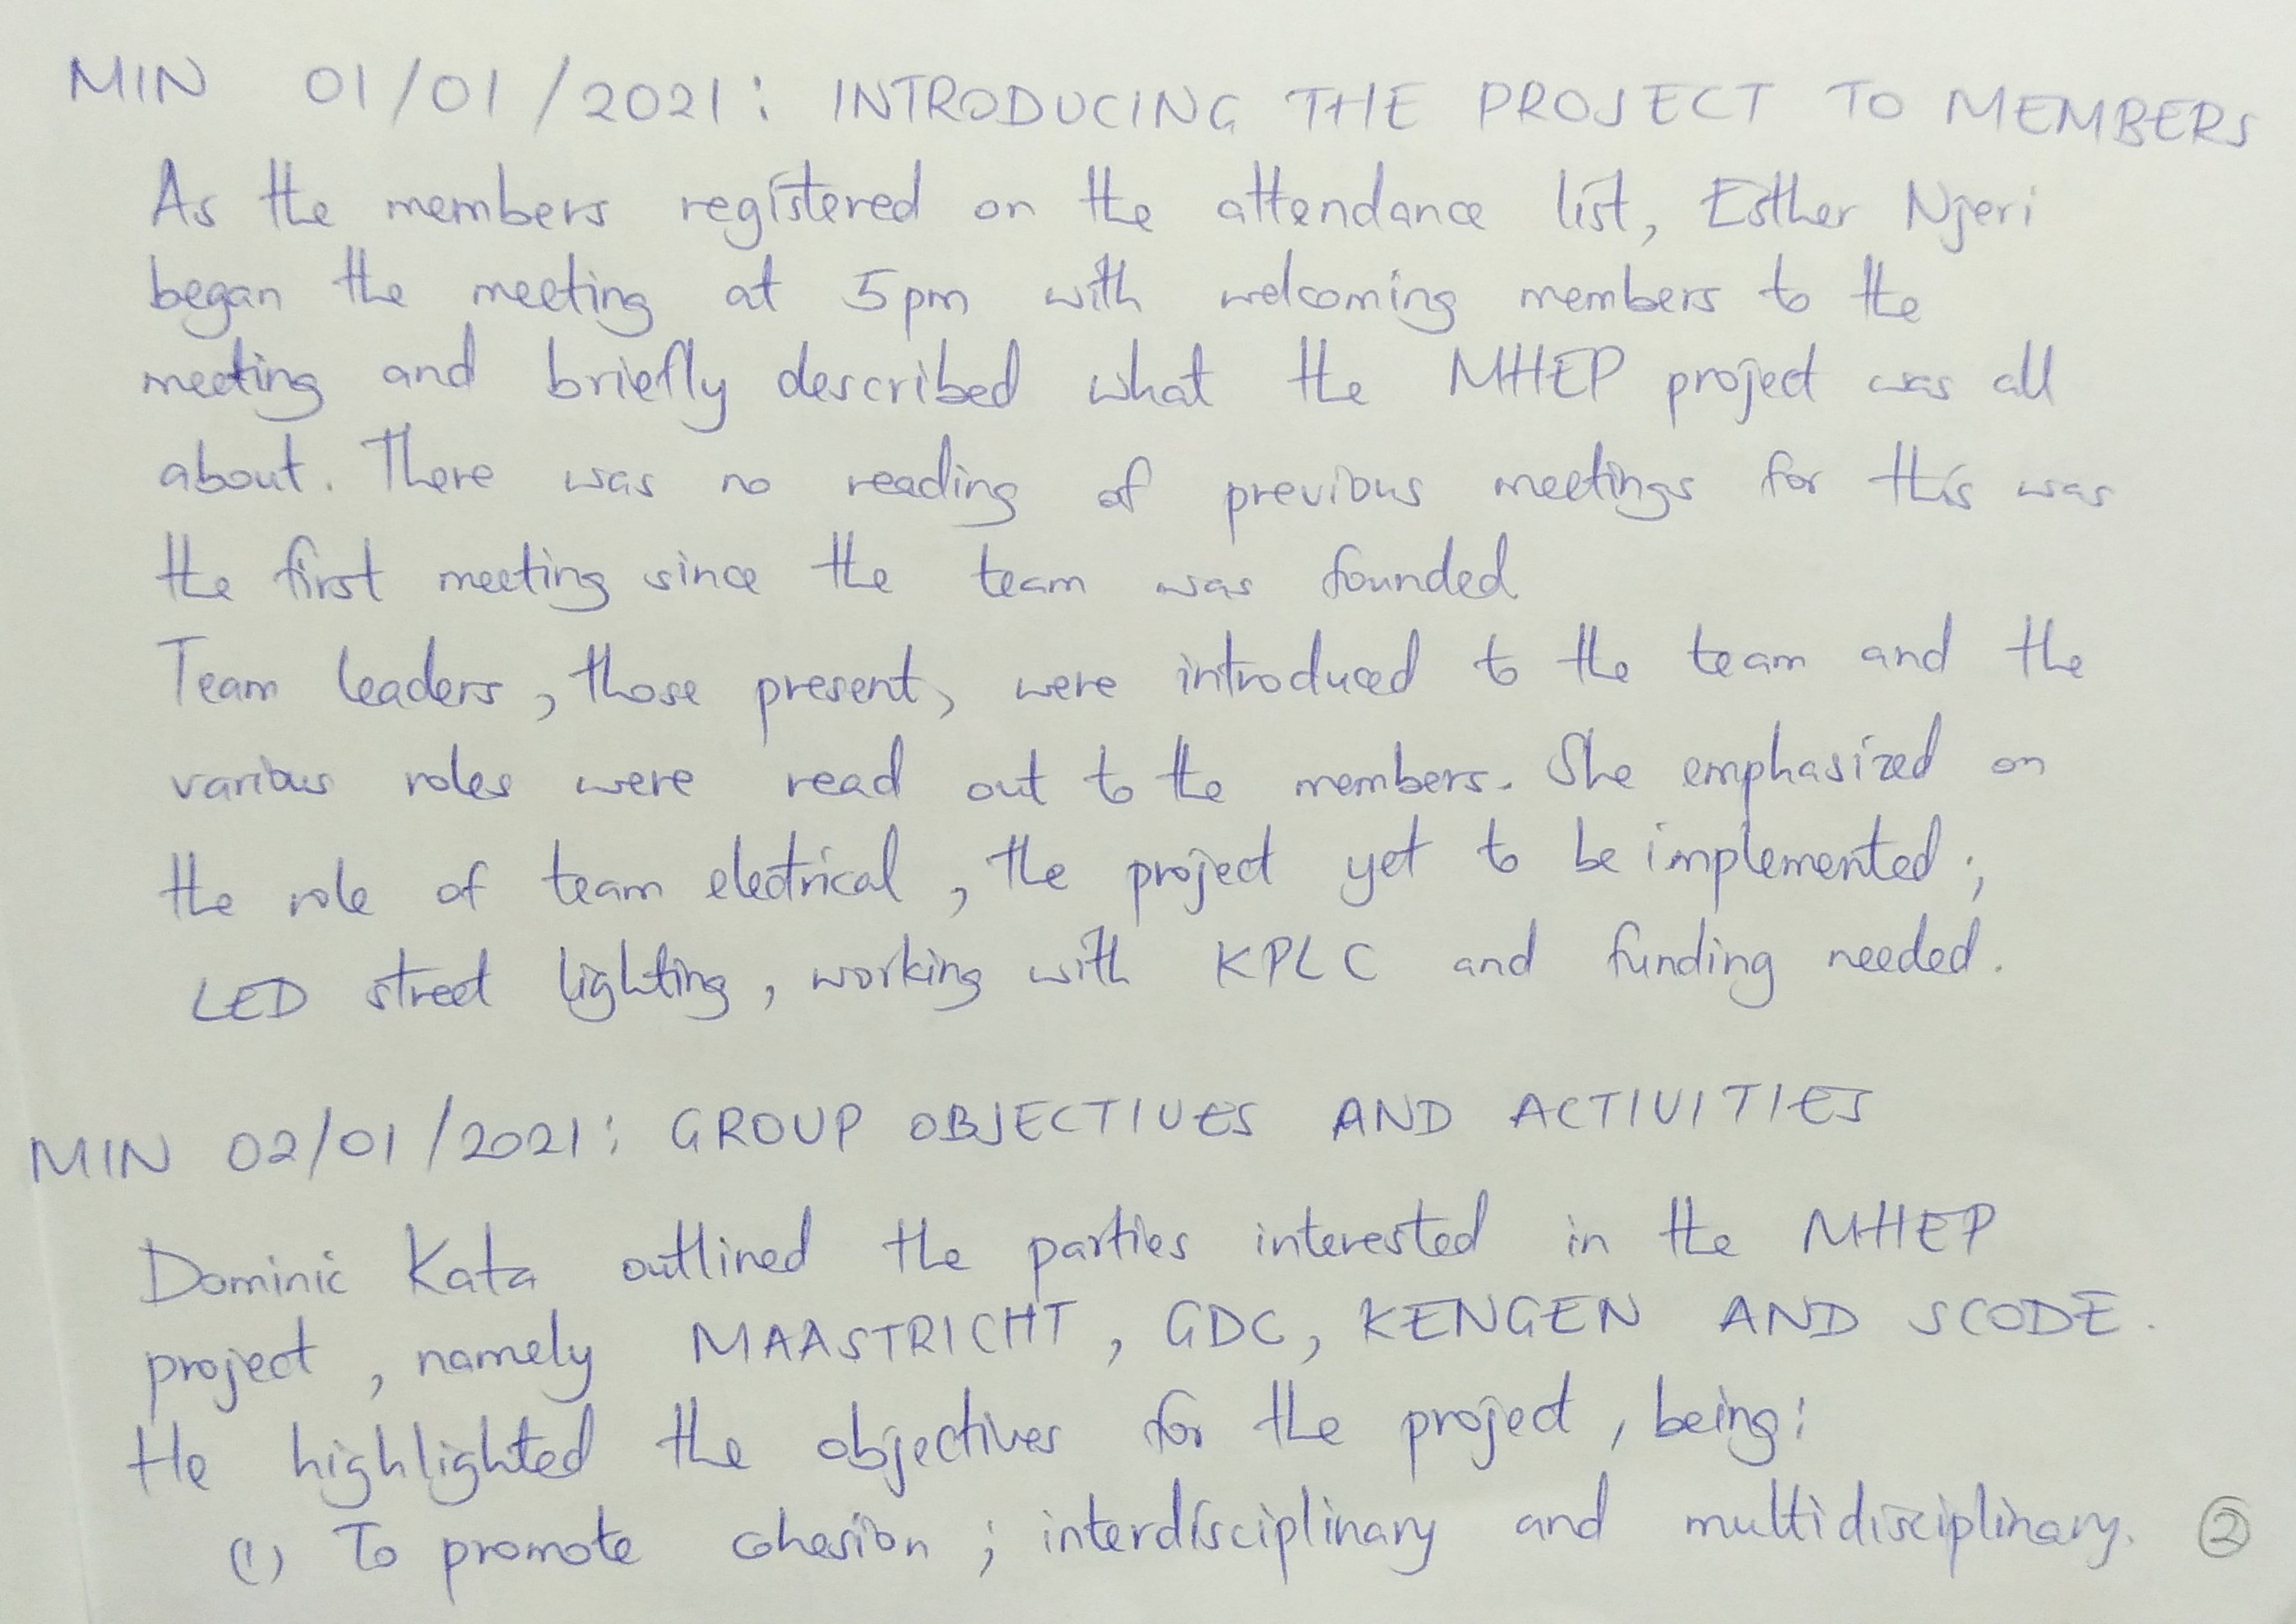 MIN 01/01/2021: INTRODUCING THE PROJECT TO MEMBERS
As the members registered on the attendance list, Esther Njeri
began the meeting at 5pm with welcoming members to the
meeting and briefly described what the MHEP project was all
about. There was no reading of previous meetings for this was
the first meeting since the team was founded
Team leaders, those present, were introduced to the team and the
various roles were read out to the members. She emphasized on
the role of team electrical, the project yet to be implemented;
LED street lighting, working with KPLC and funding needed.
MIN 02/01/2021: GROUP OBJECTIVES AND ACTIVITIES
Dominic Kata outlined the parties interested in the MHEP
project, namely MAASTRICHT, GDC, KENGEN AND SCODE.
He highlighted the objectives for the project, being:
(1) To promote cohesion; interdisciplinary and multidisciplinary. 2